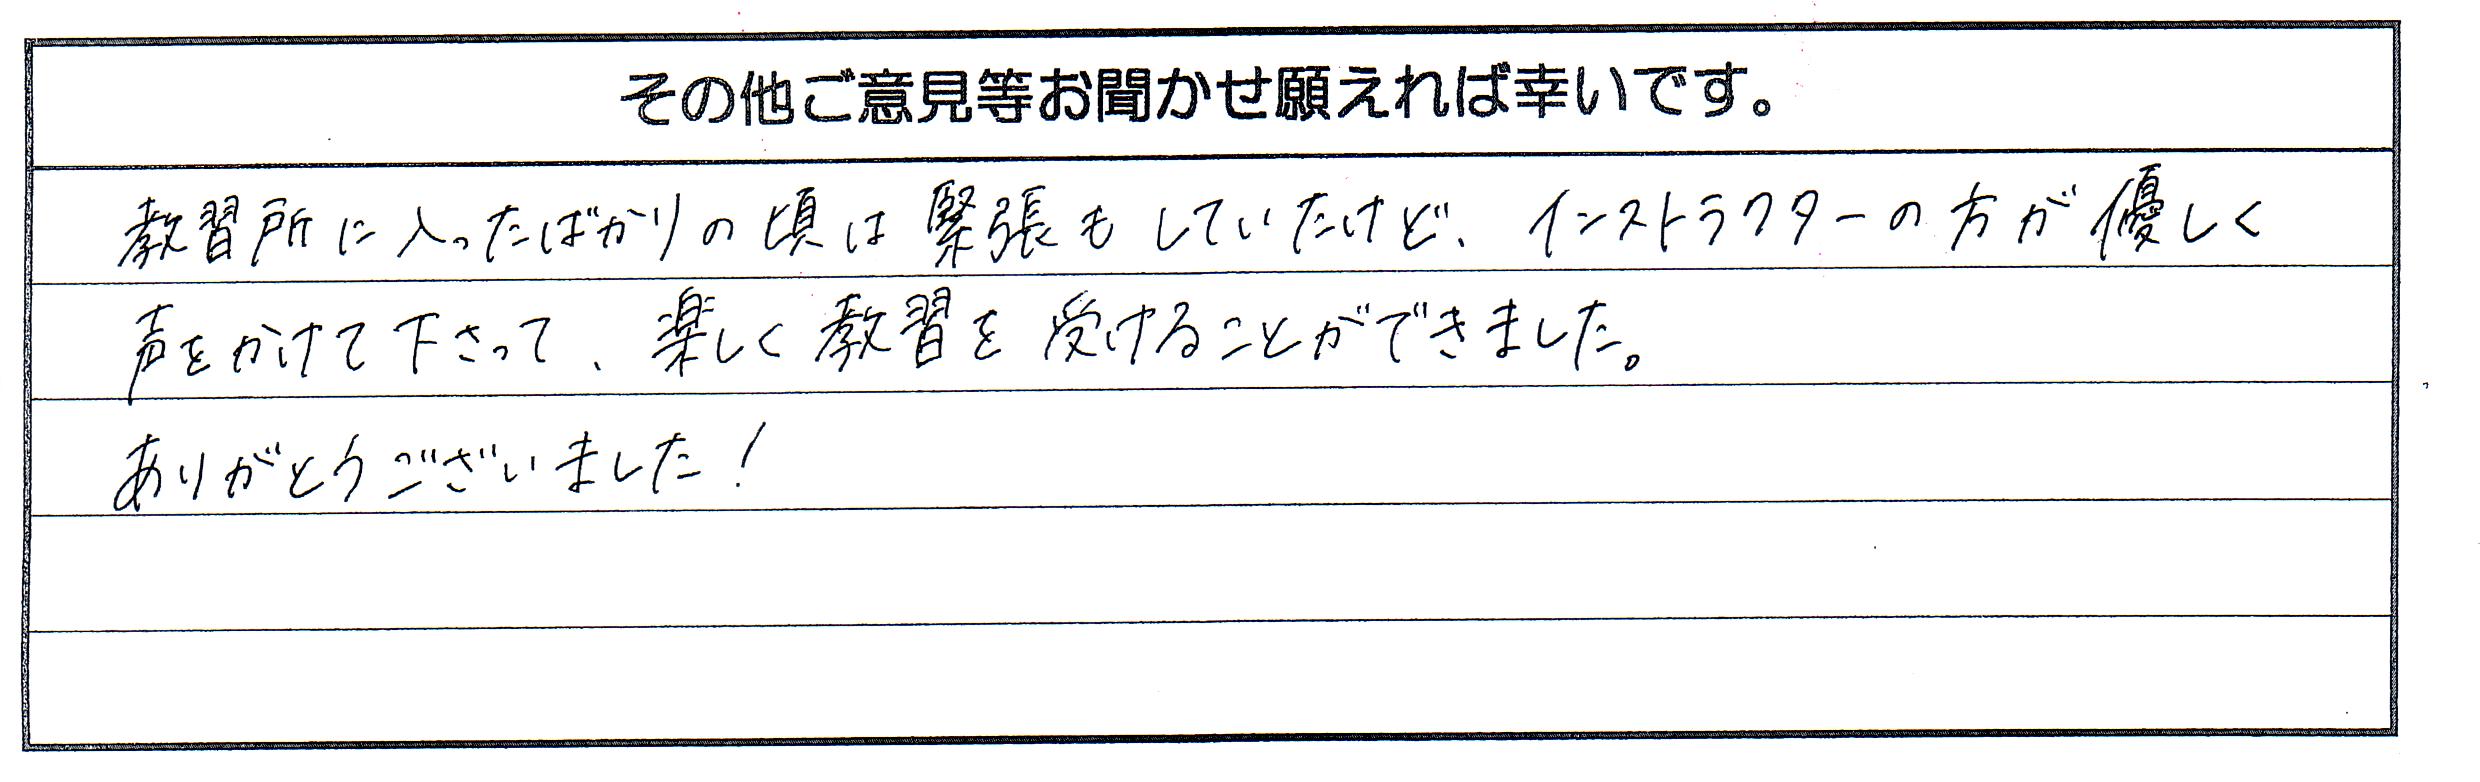 その他ご意見等お聞かせ願えれば幸いです。
教習所に入ったばかりの頃は緊張もしていたけど、インストラクターの方が優しく
声をかけて下さって、楽しく教習を受けることができました。
ありがとうございました!